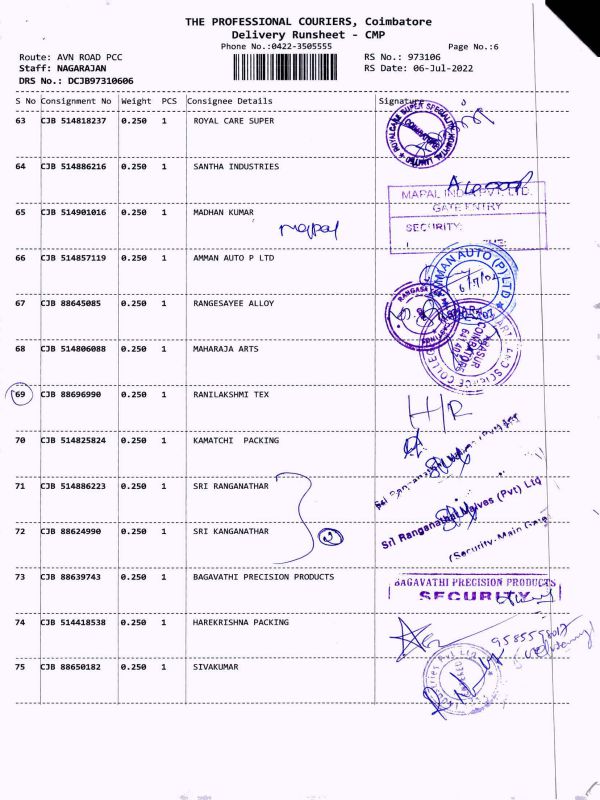 THE PROFESSIONAL COURIERS, Coimbatore
Delivery Runsheet - CMP
Phone No.:0422-3505555 Page No.:6
Route: AVN ROAD PCC RS No.: 973106
Staff: NAGARAJAN RS Date: 06-Jul-2022
DRS No.: DCJB97310606
S No Consignment No Weight PCS Consignee Details Signature
63 CJB 514818237 0.250 1 ROYAL CARE SUPER
64 CJB 514886216 0.250 1 SANTHA INDUSTRIES
MAPAL INDIA PVT. LTD.
GATE ENTRY
65 CJB 514901016 0.250 1 MADHAN KUMAR
mapal
SECURITY:
66 CJB 514857119 0.250 1 AMMAN AUTO P LTD
AMMAN AUTO (P) LTD
67 CJB 88645085 0.250 1 RANGESAYEE ALLOY
68 CJB 514806088 0.250 1 MAHARAJA ARTS
69 CJB 88696990 0.250 1 RANILAKSHMI TEX
H/R
70 CJB 514825824 0.250 1 KAMATCHI PACKING
71 CJB 514886223 0.250 1 SRI RANGANATHAR
Sri Ranganathar Valves (Pvt) Ltd
72 CJB 88624990 0.250 1 SRI KANGANATHAR
2
(Security-Main Gate)
73 CJB 88639743 0.250 1 BAGAVATHI PRECISION PRODUCTS
BAGAVATHI PRECISION PRODUCTS
SECURITY
74 CJB 514418538 0.250 1 HAREKRISHNA PACKING
75 CJB 88650182 0.250 1 SIVAKUMAR